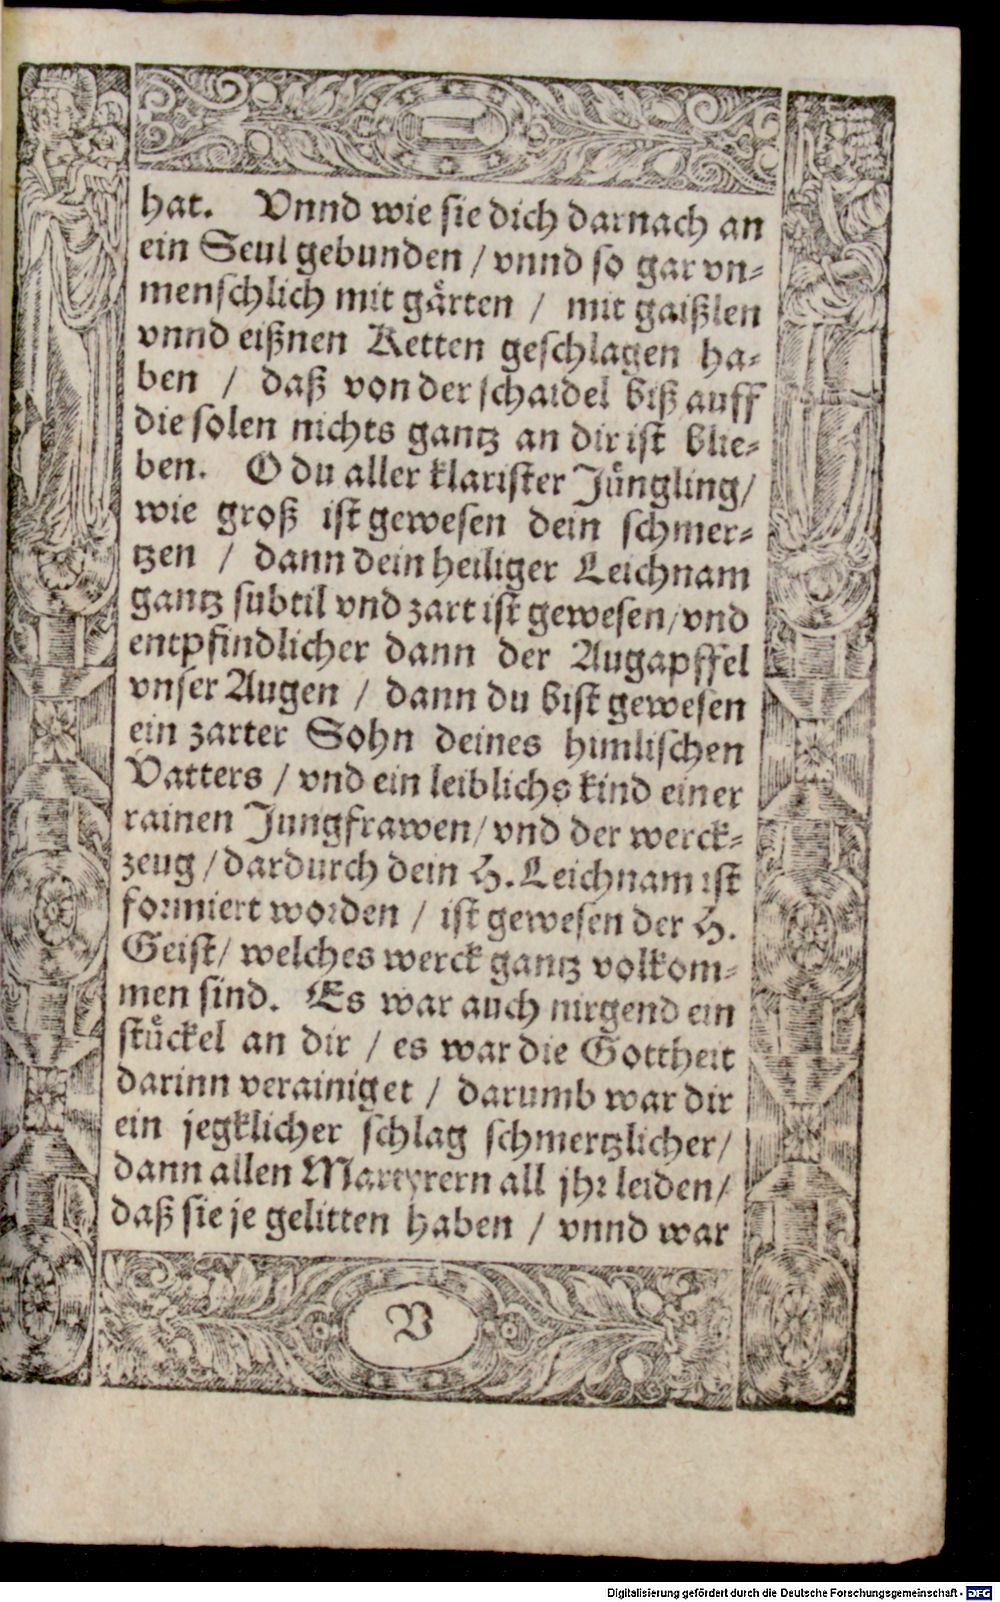 hat. Vnnd wie sie dich darnach an
ein Seul gebunden / vnnd so gar vn⸗
menschlich mit gaͤrten / mit gaißlen
vnnd eißnen Ketten geschlagen ha⸗
ben / daß von der schaidel biß auff
die solen nichts gantz an dir ist blie⸗
ben. O du aller klarister Juͤngling/
wie groß ist gewesen dein schmer⸗
tzen / dann dein heiliger Leichnam
gantz subtil vnd zart ist gewesen/vnd
entpfindlicher dann der Augapffel
vnser Augen / dann du bist gewesen
ein zarter Sohn deines himlischen
Vatters / vnd ein leiblichs kind einer
rainen Jungfrawen/ vnd der werck⸗
zeug / dardurch dein H. Leichnam ist
formiert worden / ist gewesen der H.
Geist/ welches werck gantz volkom⸗
men sind. Es war auch nirgend ein
stuͤckel an dir / es war die Gottheit
darinn verainiget / darumb war dir
ein jegklicher schlag schmertzlicher/
dann allen Martyrern all jhr leiden/
daß sie je gelitten haben / vnnd war
V
Digitalisierung gefördert durch die Deutsche Forschungsgemeinschaft - DFG